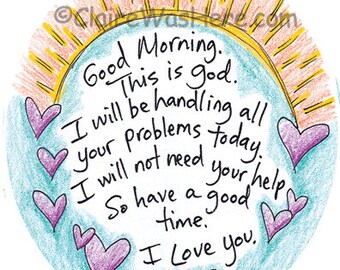 ©ClaireWasHere.com
Good Morning.
This is god.
I will be handling all
your Problems today.
I will not need your help
So have a good
time.
I Love you.